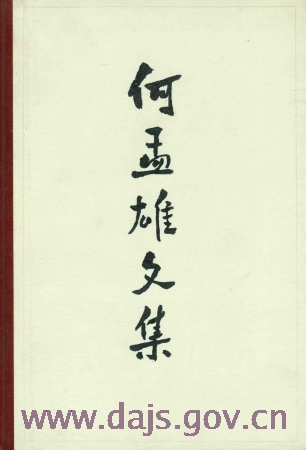 何孟雄文集
www.dajs.gov.cn